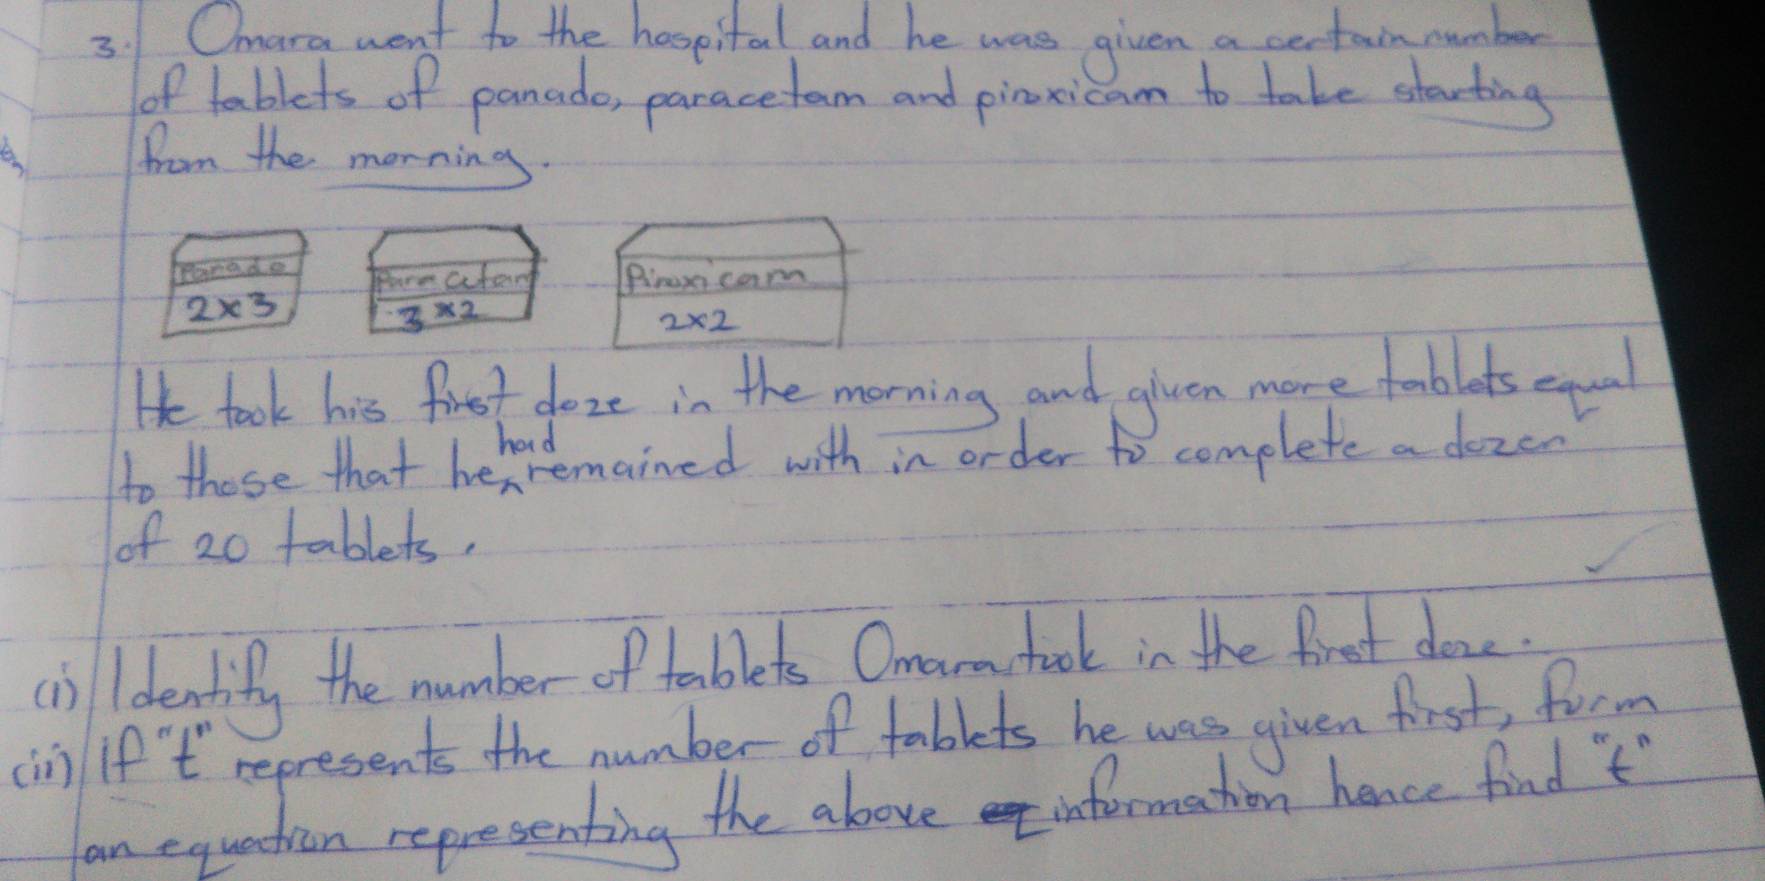 3. Omara went to the hospital and he was given a certain number
of tablets of panado, paracetam and piroxicam to take starting
from the morning.
Panado Paracetam Piroxicam
2x3 3x2 2x2
He took his first doze in the morning and given more tablets equal
to those that he had remained with in order to complete a dozen
of 20 tablets.
(i) Identify the number of tablets Omara took in the first doze.
(ii) If "t" represents the number of tablets he was given first, form
an equation representing the above information hence find "t"